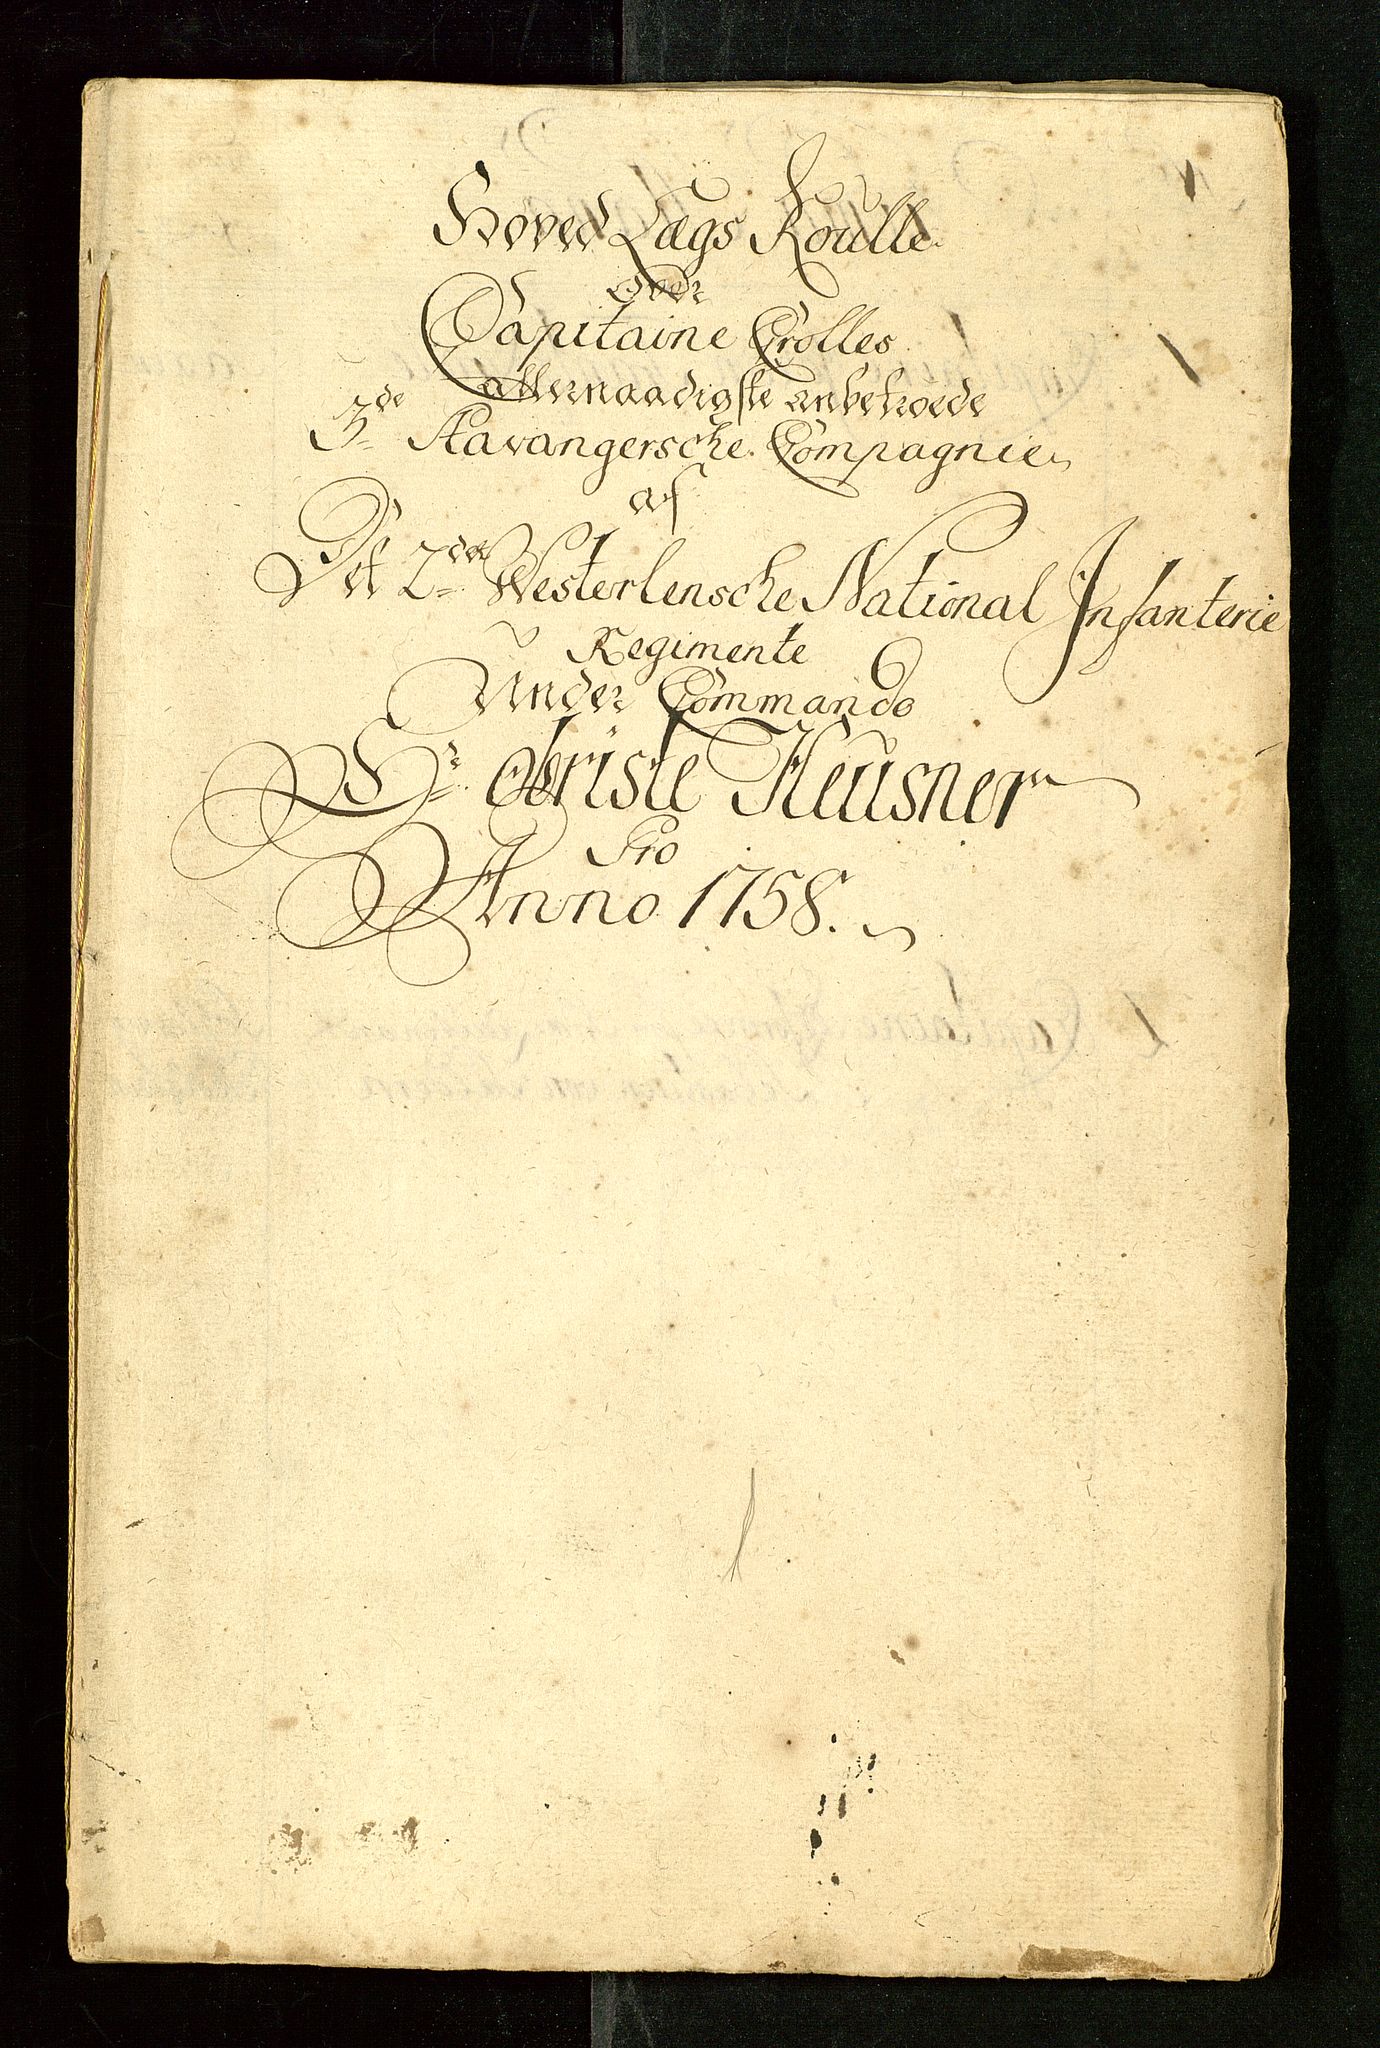 Hoved Lægs Roulle
over
Capitaine Crolles
allernaadigste anbetroede
3de Stavangersche Compagnie
af
Det 2det Westerlensche National Infanterie
Regimente
Under Commando
Hr Obriste Heusner
Pro
Anno 1758.